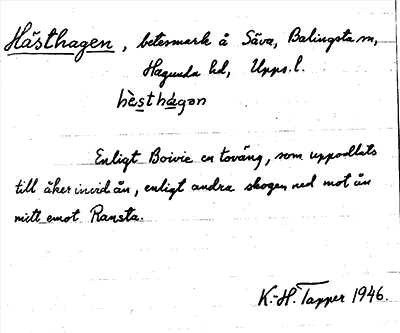 Hästhagen, betesmark å Säva, Balingsta sn,
Hagunda hd, Upps. l.
hèsthágən
Enligt Boivie en tovång, som uppodlats
till åker invid ån, enligt andra skogen ned mot ån
mitt emot Ramsta.
K.-H. Tapper 1946.